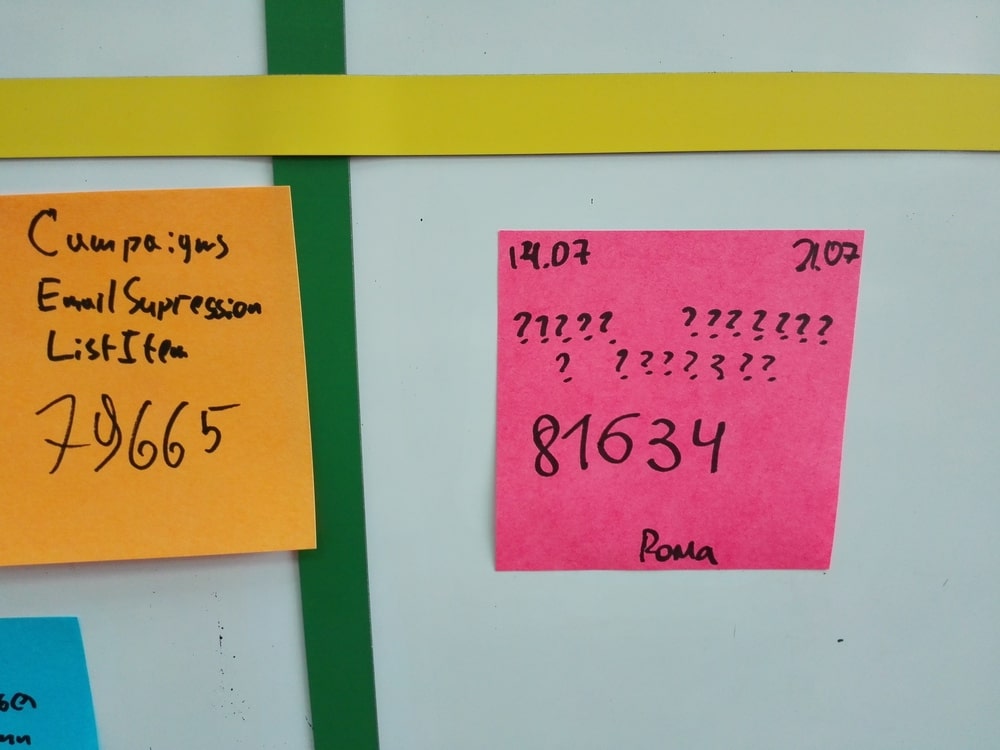 Cumpaigns
EmailSupression
ListItem
79665
14.07 21.07
????? ???????
? ???????
81634
Roma